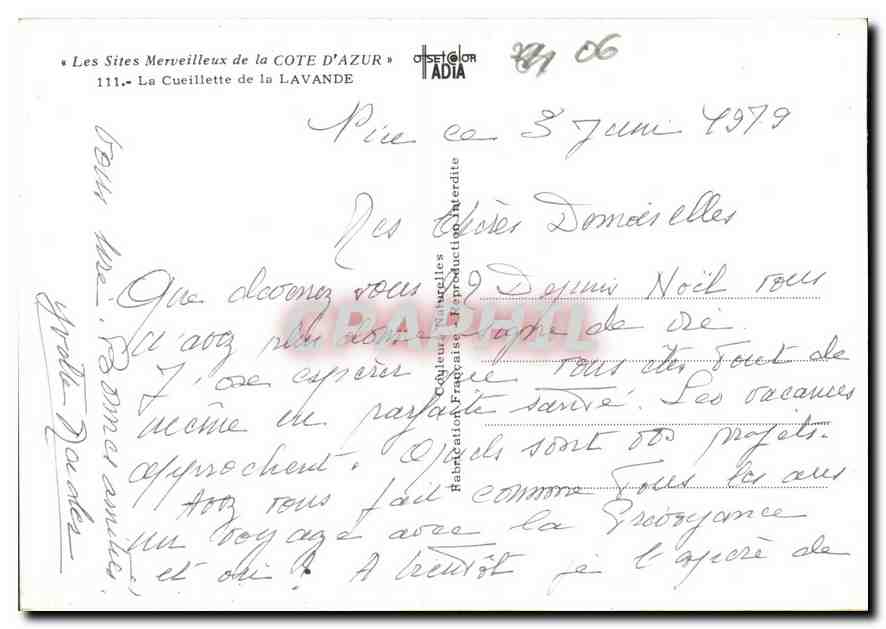 « Les Sites Merveilleux de la COTE D'AZUR »
111.- La Cueillette de la LAVANDE
OFFSETCOLOR
ADIA
06
ce 3 Juin 1979
Mes chères Demoiselles
Que devenez vous ? Depuis Noël vous
n'avez plus donné signe de vie.
J'ose espérer que vous êtes tout de
même en parfaite santé. Les vacances
approchent. Quels sont vos projets.
Avez vous fait comme tous les ans
un voyage avec la Prévoyance
et où ? A bientôt je l'espère de
vous lire. Bonnes amitiés.
Yvette
Couleurs Naturelles
Fabrication Française - Reproduction Interdite
CPAPHIL